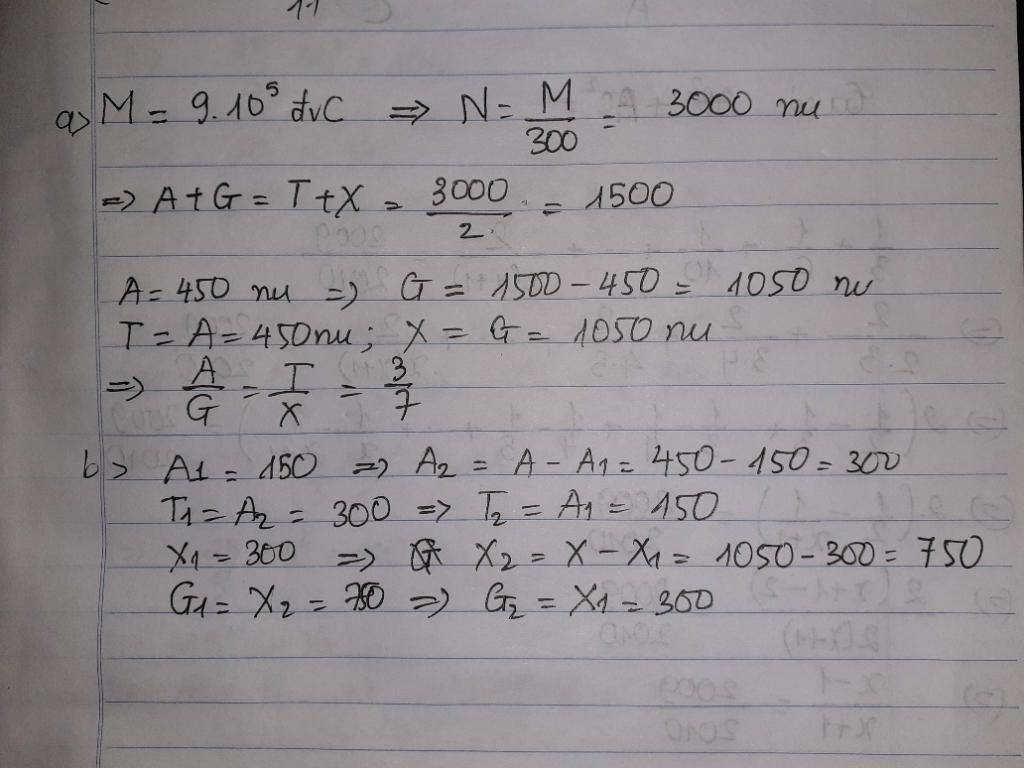 a> M = 9.10⁵ đvC ⇒ N = M/300 = 3000 nu
⇒ A+G = T+X = 3000/2 = 1500
A = 450 nu ⇒ G = 1500 - 450 = 1050 nu
T = A = 450 nu; X = G = 1050 nu
⇒ A/G = T/X = 3/7
b> A1 = 150 ⇒ A2 = A - A1 = 450 - 150 = 300
T1 = A2 = 300 ⇒ T2 = A1 = 150
X1 = 300 ⇒ X2 = X - X1 = 1050 - 300 = 750
G1 = X2 = 750 ⇒ G2 = X1 = 300